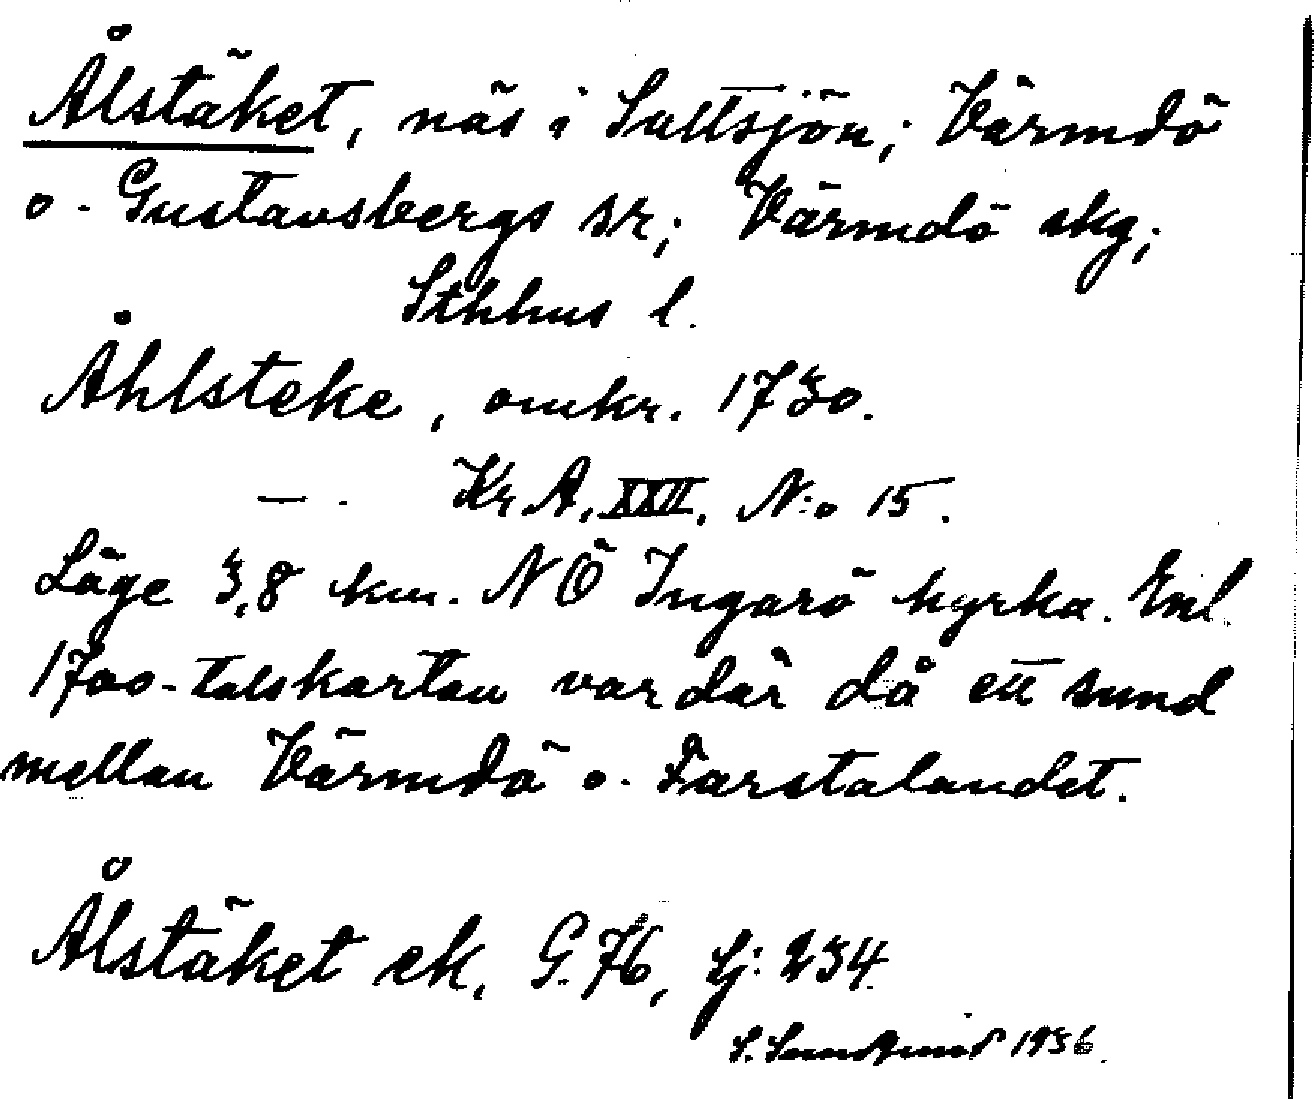 Ålstäket, näs i Saltsjön; Värmdö
o. Gustavsbergs sr; Värmdö skg;
Sthlms l.
Åhlsteke, omkr. 1730.
— . Kr. A. XXII. N:o 15.
Läge 3,8 km. NÖ Ingarö kyrka. Enl.
1700-talskartan var där då ett sund
mellan Värmdö o. Farstalandet.
Ålstäket ek. G. 76, Lj: 234.
S. Sundqvist 1936.